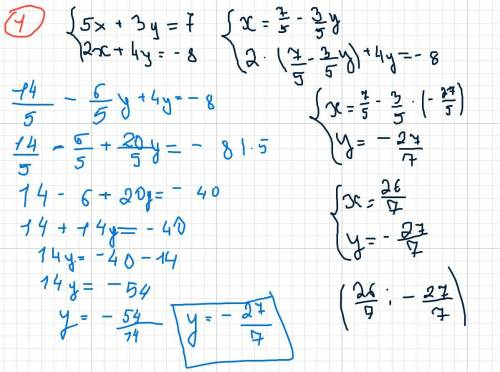 1
{ 5x + 3y = 7
2x + 4y = -8
{ x = 7/5 - 3/5 y
2 · (7/5 - 3/5 y) + 4y = -8
14/5 - 6/5 y + 4y = -8
14/5 - 6/5 + 20/5 y = - 8 | · 5
14 - 6 + 20y = - 40
14 + 14y = -40
14y = -40 - 14
14y = -54
y = - 54/14
y = - 27/7
{ x = 7/5 - 3/5 · (- 27/5)
y = - 27/7
{ x = 26/7
y = - 27/7
(26/7 ; - 27/7)